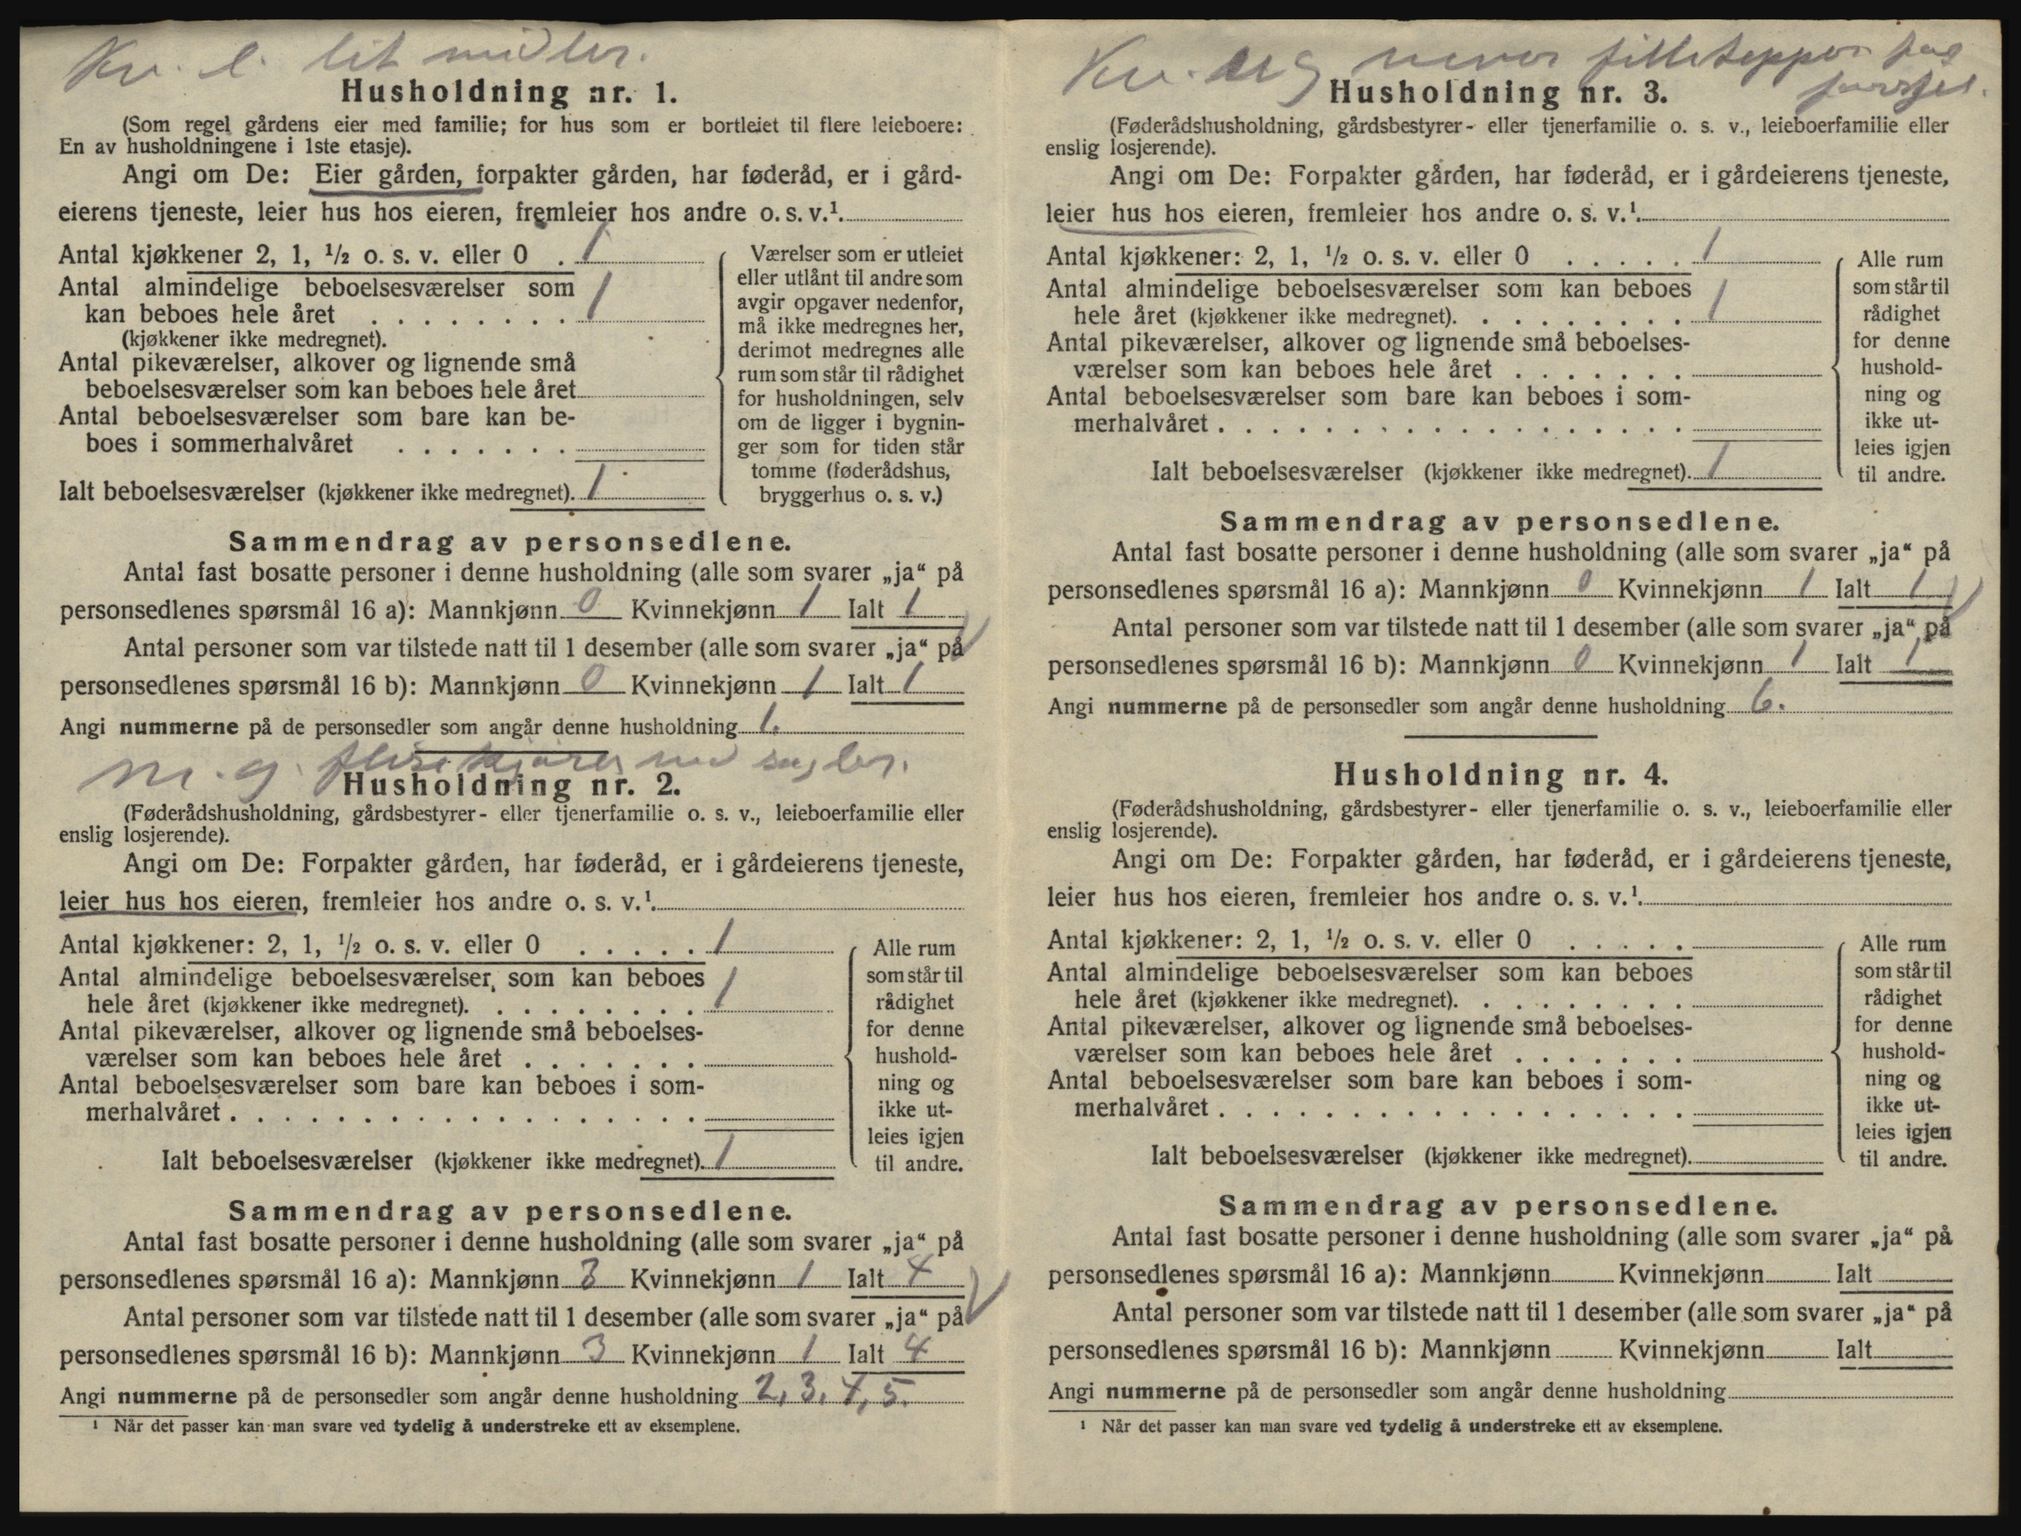 Kv. l. lit midler.
Husholdning nr. 1.
(Som regel gårdens eier med familie; for hus som er bortleiet til flere leieboere:
En av husholdningene i 1ste etasje).
Angi om De: Eier gården, forpakter gården, har føderåd, er i gård-
eierens tjeneste, leier hus hos eieren, fremleier hos andre o. s. v.¹.
Antal kjøkkener 2, 1, ½ o. s. v. eller 0 . 1
Antal almindelige beboelsesværelser som
kan beboes hele året . . . . . . . . 1
(kjøkkener ikke medregnet).
Antal pikeværelser, alkover og lignende små
beboelsesværelser som kan beboes hele året
Antal beboelsesværelser som bare kan be-
boes i sommerhalvåret . . . . . . .
Ialt beboelsesværelser (kjøkkener ikke medregnet). 1
Værelser som er utleiet
eller utlånt til andre som
avgir opgaver nedenfor,
må ikke medregnes her,
derimot medregnes alle
rum som står til rådighet
for husholdningen, selv
om de ligger i bygnin-
ger som for tiden står
tomme (føderådshus,
bryggerhus o. s. v.)
Sammendrag av personsedlene.
Antal fast bosatte personer i denne husholdning (alle som svarer „ja“ på
personsedlenes spørsmål 16 a): Mannkjønn 0 Kvinnekjønn 1 Ialt 1
Antal personer som var tilstede natt til 1 desember (alle som svarer „ja“ på
personsedlenes spørsmål 16 b): Mannkjønn 0 Kvinnekjønn 1 Ialt 1
Angi nummerne på de personsedler som angår denne husholdning 1.
m. g. flisekjører ved sagbr.
Husholdning nr. 2.
(Føderådshusholdning, gårdsbestyrer- eller tjenerfamilie o. s. v., leieboerfamilie eller
enslig losjerende).
Angi om De: Forpakter gården, har føderåd, er i gårdeierens tjeneste,
leier hus hos eieren, fremleier hos andre o. s. v.¹.
Antal kjøkkener: 2, 1, ½ o. s. v. eller 0 . . . . . 1
Antal almindelige beboelsesværelser, som kan beboes
hele året (kjøkkener ikke medregnet). . . . . . . . . 1
Antal pikeværelser, alkover og lignende små beboelses-
værelser som kan beboes hele året . . . . . . .
Antal beboelsesværelser som bare kan beboes i som-
merhalvåret . . . . . . . . . . . . . . . . . .
Ialt beboelsesværelser (kjøkkener ikke medregnet). 1
Alle rum
som står til
rådighet
for denne
hushold-
ning og
ikke ut-
leies igjen
til andre.
Sammendrag av personsedlene.
Antal fast bosatte personer i denne husholdning (alle som svarer „ja“ på
personsedlenes spørsmål 16 a): Mannkjønn 3 Kvinnekjønn 1 Ialt 4
Antal personer som var tilstede natt til 1 desember (alle som svarer „ja“ på
personsedlenes spørsmål 16 b): Mannkjønn 3 Kvinnekjønn 1 Ialt 4
Angi nummerne på de personsedler som angår denne husholdning 2, 3, 4, 5.
¹ Når det passer kan man svare ved tydelig å understreke ett av eksemplene.
Kv. ug vever filletepper
Husholdning nr. 3.
(Føderådshusholdning, gårdsbestyrer- eller tjenerfamilie o. s. v., leieboerfamilie eller
enslig losjerende).
Angi om De: Forpakter gården, har føderåd, er i gårdeierens tjeneste,
leier hus hos eieren, fremleier hos andre o. s. v.¹.
Antal kjøkkener: 2, 1, ½ o. s. v. eller 0 . . . . . 1
Antal almindelige beboelsesværelser som kan beboes
hele året (kjøkkener ikke medregnet). . . . . . . . . 1
Antal pikeværelser, alkover og lignende små beboelses-
værelser som kan beboes hele året . . . . . . .
Antal beboelsesværelser som bare kan beboes i som-
merhalvåret . . . . . . . . . . . . . . . . . .
Ialt beboelsesværelser (kjøkkener ikke medregnet). 1
Alle rum
som står til
rådighet
for denne
hushold-
ning og
ikke ut-
leies igjen
til andre.
Sammendrag av personsedlene.
Antal fast bosatte personer i denne husholdning (alle som svarer „ja“ på
personsedlenes spørsmål 16 a): Mannkjønn 0 Kvinnekjønn 1 Ialt 1
Antal personer som var tilstede natt til 1 desember (alle som svarer „ja“ på
personsedlenes spørsmål 16 b): Mannkjønn 0 Kvinnekjønn 1 Ialt 1
Angi nummerne på de personsedler som angår denne husholdning 6.
Husholdning nr. 4.
(Føderådshusholdning, gårdsbestyrer- eller tjenerfamilie o. s. v., leieboerfamilie eller
enslig losjerende).
Angi om De: Forpakter gården, har føderåd, er i gårdeierens tjeneste,
leier hus hos eieren, fremleier hos andre o. s. v.¹.
Antal kjøkkener: 2, 1, ½ o. s. v. eller 0 . . . . .
Antal almindelige beboelsesværelser som kan beboes
hele året (kjøkkener ikke medregnet). . . . . . . . .
Antal pikeværelser, alkover og lignende små beboelses-
værelser som kan beboes hele året . . . . . . .
Antal beboelsesværelser som bare kan beboes i som-
merhalvåret . . . . . . . . . . . . . . . . . .
Ialt beboelsesværelser (kjøkkener ikke medregnet).
Alle rum
som står til
rådighet
for denne
hushold-
ning og
ikke ut-
leies igjen
til andre.
Sammendrag av personsedlene.
Antal fast bosatte personer i denne husholdning (alle som svarer „ja“ på
personsedlenes spørsmål 16 a): Mannkjønn Kvinnekjønn Ialt
Antal personer som var tilstede natt til 1 desember (alle som svarer „ja“ på
personsedlenes spørsmål 16 b): Mannkjønn Kvinnekjønn Ialt
Angi nummerne på de personsedler som angår denne husholdning
¹ Når det passer kan man svare ved tydelig å understreke ett av eksemplene.